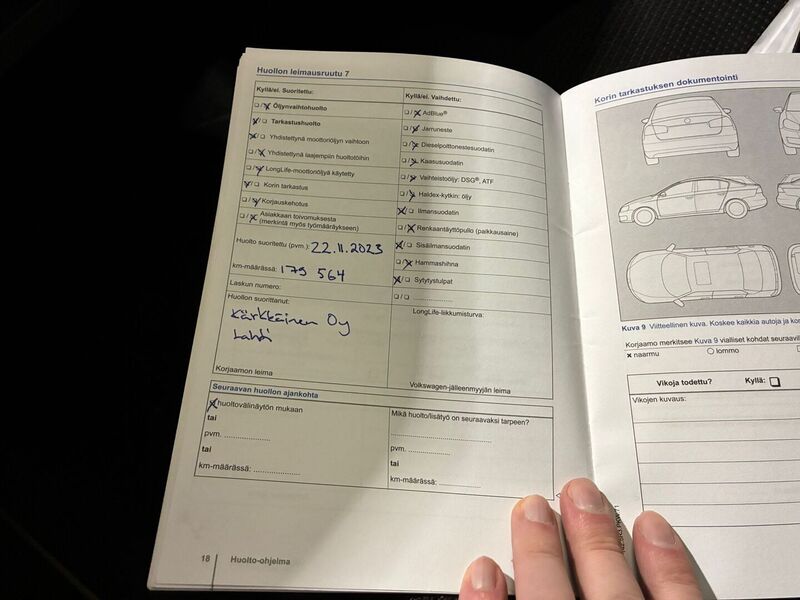 Huollon leimausruutu 7
Kyllä/ei. Suoritettu:
☐/☒ Öljynvaihtohuolto
☒/☐ Tarkastushuolto
☒/☐ Yhdistettynä moottoriöljyn vaihtoon
☐/☒ Yhdistettynä laajempiin huoltotöihin
☐/☒ LongLife-moottoriöljyä käytetty
☒/☐ Korin tarkastus
☐/☒ Korjauskehotus
☐/☒ Asiakkaan toivomuksesta
(merkintä myös työmääräykseen)
Huolto suoritettu (pvm.): 22.11.2023
km-määrässä: 179 564
Laskun numero:
Huollon suorittanut:
Kärkkäinen Oy
Lahti
Korjaamon leima
Kyllä/ei. Vaihdettu:
☐/☒ AdBlue®
☐/☒ Jarruneste
☐/☒ Dieselpolttonestesuodatin
☐/☒ Kaasusuodatin
☐/☒ Vaihteistoöljy: DSG®, ATF
☐/☒ Haldex-kytkin: öljy
☒/☐ Ilmansuodatin
☐/☒ Renkaantäyttöpullo (paikkausaine)
☒/☐ Sisäilmansuodatin
☐/☒ Hammashihna
☒/☐ Sytytystulpat
☐/☐ ....................
LongLife-liikkumisturva:
Volkswagen-jälleenmyyjän leima
Seuraavan huollon ajankohta
☒ huoltovälinäytön mukaan
tai
pvm. ....................
tai
km-määrässä: ....................
Mikä huolto/lisätyö on seuraavaksi tarpeen?
....................
pvm. ....................
tai
km-määrässä: ....................
18 Huolto-ohjelma
Korin tarkastuksen dokumentointi
Kuva 9 Viitteellinen kuva. Koskee kaikkia autoja ja
Korjaamo merkitsee Kuva 9 vialliset kohdat
× naarmu ○ lommo
Vikoja todettu? Kyllä: ☐
Vikojen kuvaus: